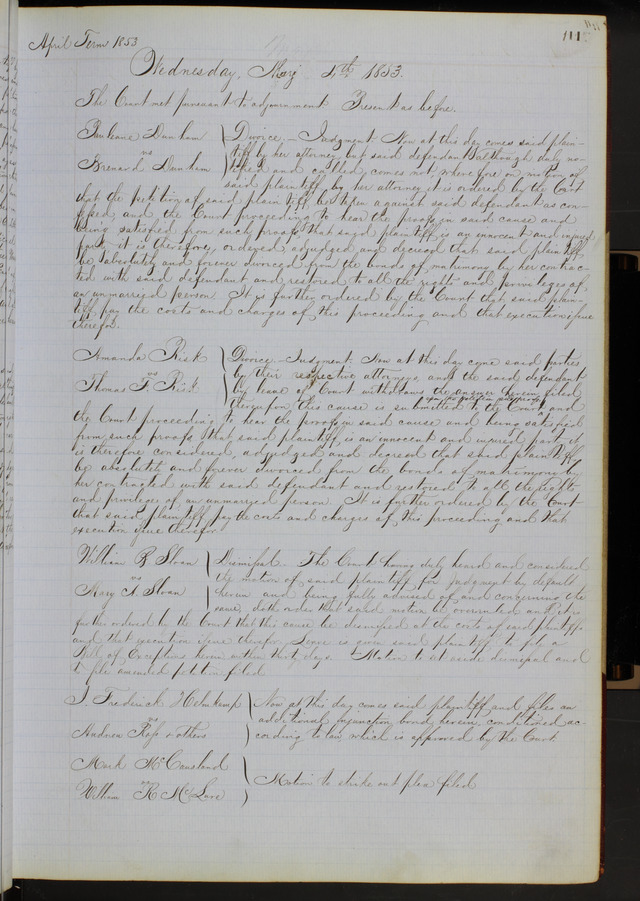 April Term 1853
111
Wednesday, May 4th 1853.
The Court met pursuant to adjournment Present as before.
Dunham
vs
Dunham
Divorce - Judgment - Now at this day comes said plain-
tiff by her attorney but said defendant although duly no-
tified and called comes not, wherefore on motion of
said plaintiff by her attorney it is ordered by the Court
that the petition of said plaintiff be taken against said defendant as con-
fessed and the Court proceeding to hear the proofs in said cause and
being satisfied from such proofs that said plaintiff is an innocent and injured
party it is therefore ordered adjudged and decreed that said plaintiff
be absolutely and forever divorced from the bonds of matrimony by her contrac-
ted with said defendant and restored to all the rights and privileges of
an unmarried person It is further ordered by the Court that said plain-
tiff pay the costs and charges of this proceeding and that execution issue
therefor.
Amanda Risk
vs
Thomas F. Risk
Divorce - Judgment. Now at this day come said parties
by their respective attorneys and the said defendant
by leave of Court withdraws the answer herein filed
thereupon this cause is submitted to the Court and
the Court proceeding to hear the proofs in said cause and being satisfied
from such proofs that said plaintiff is an innocent and injured party it
is therefore considered, adjudged and decreed that said plaintiff
be absolutely and forever divorced from the bonds of matrimony by
her contracted with said defendant and restored to all the rights
and privileges of an unmarried person. It is further ordered by the Court
that said plaintiff pay the costs and charges of this proceeding and that
execution issue therefor
William R Sloan
vs
Mary A Sloan
Dismissal. The Court having duly heard and considered
the motion of said plaintiff for judgment by default
herein and being fully advised of and concerning the
same, doth order that said motion be overruled and it is
further ordered by the Court that this cause be dismissed at the costs of said plaintiff
and that execution issue therefor. Leave is given said plaintiff to file a
Bill of Exceptions herein within thirty days. Motion to set aside dismissal and
to file amended petition filed
J. Frederick Holmkamp
vs
Andrew Ross & others
Now at this day comes said plaintiff and files an
additional injunction bond herein, conditioned ac-
cording to law which is approved by the Court.
Mark McCausland
vs
William R McLure
Motion to strike out plea filed